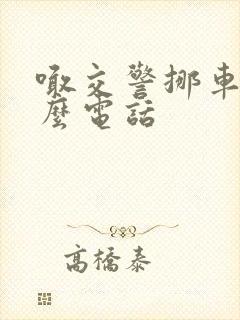 嗷交警挪車
麼電話
高橋泰